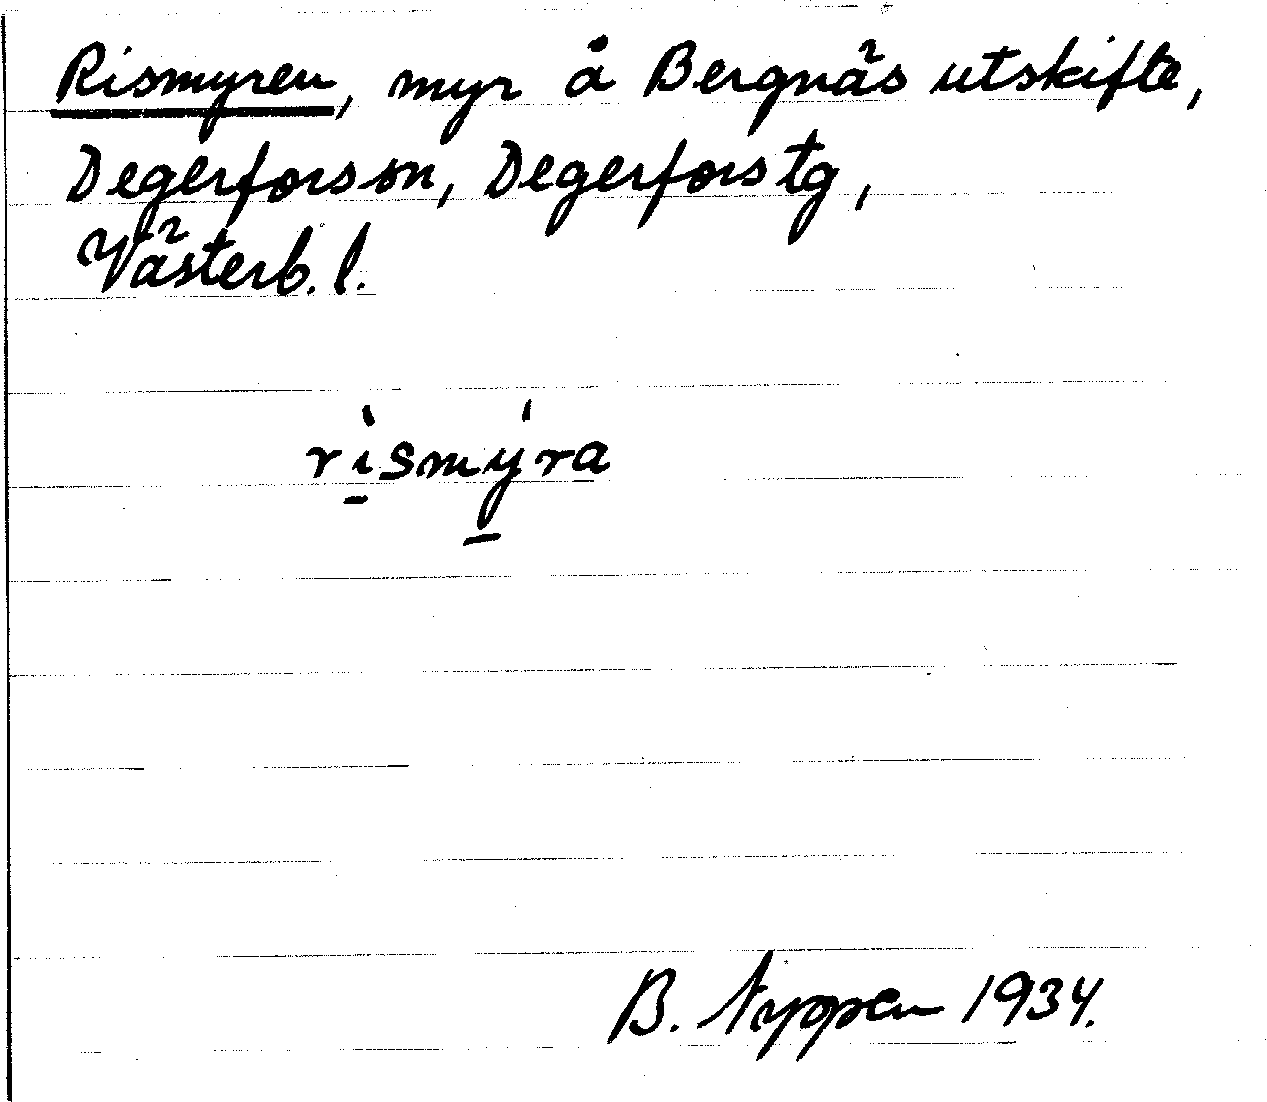 Rismyren, myr å Bergnäs utskifte,
Degerforssn, Degerfors tg,
Västerb. l.
rìsmýra
B. 1934.